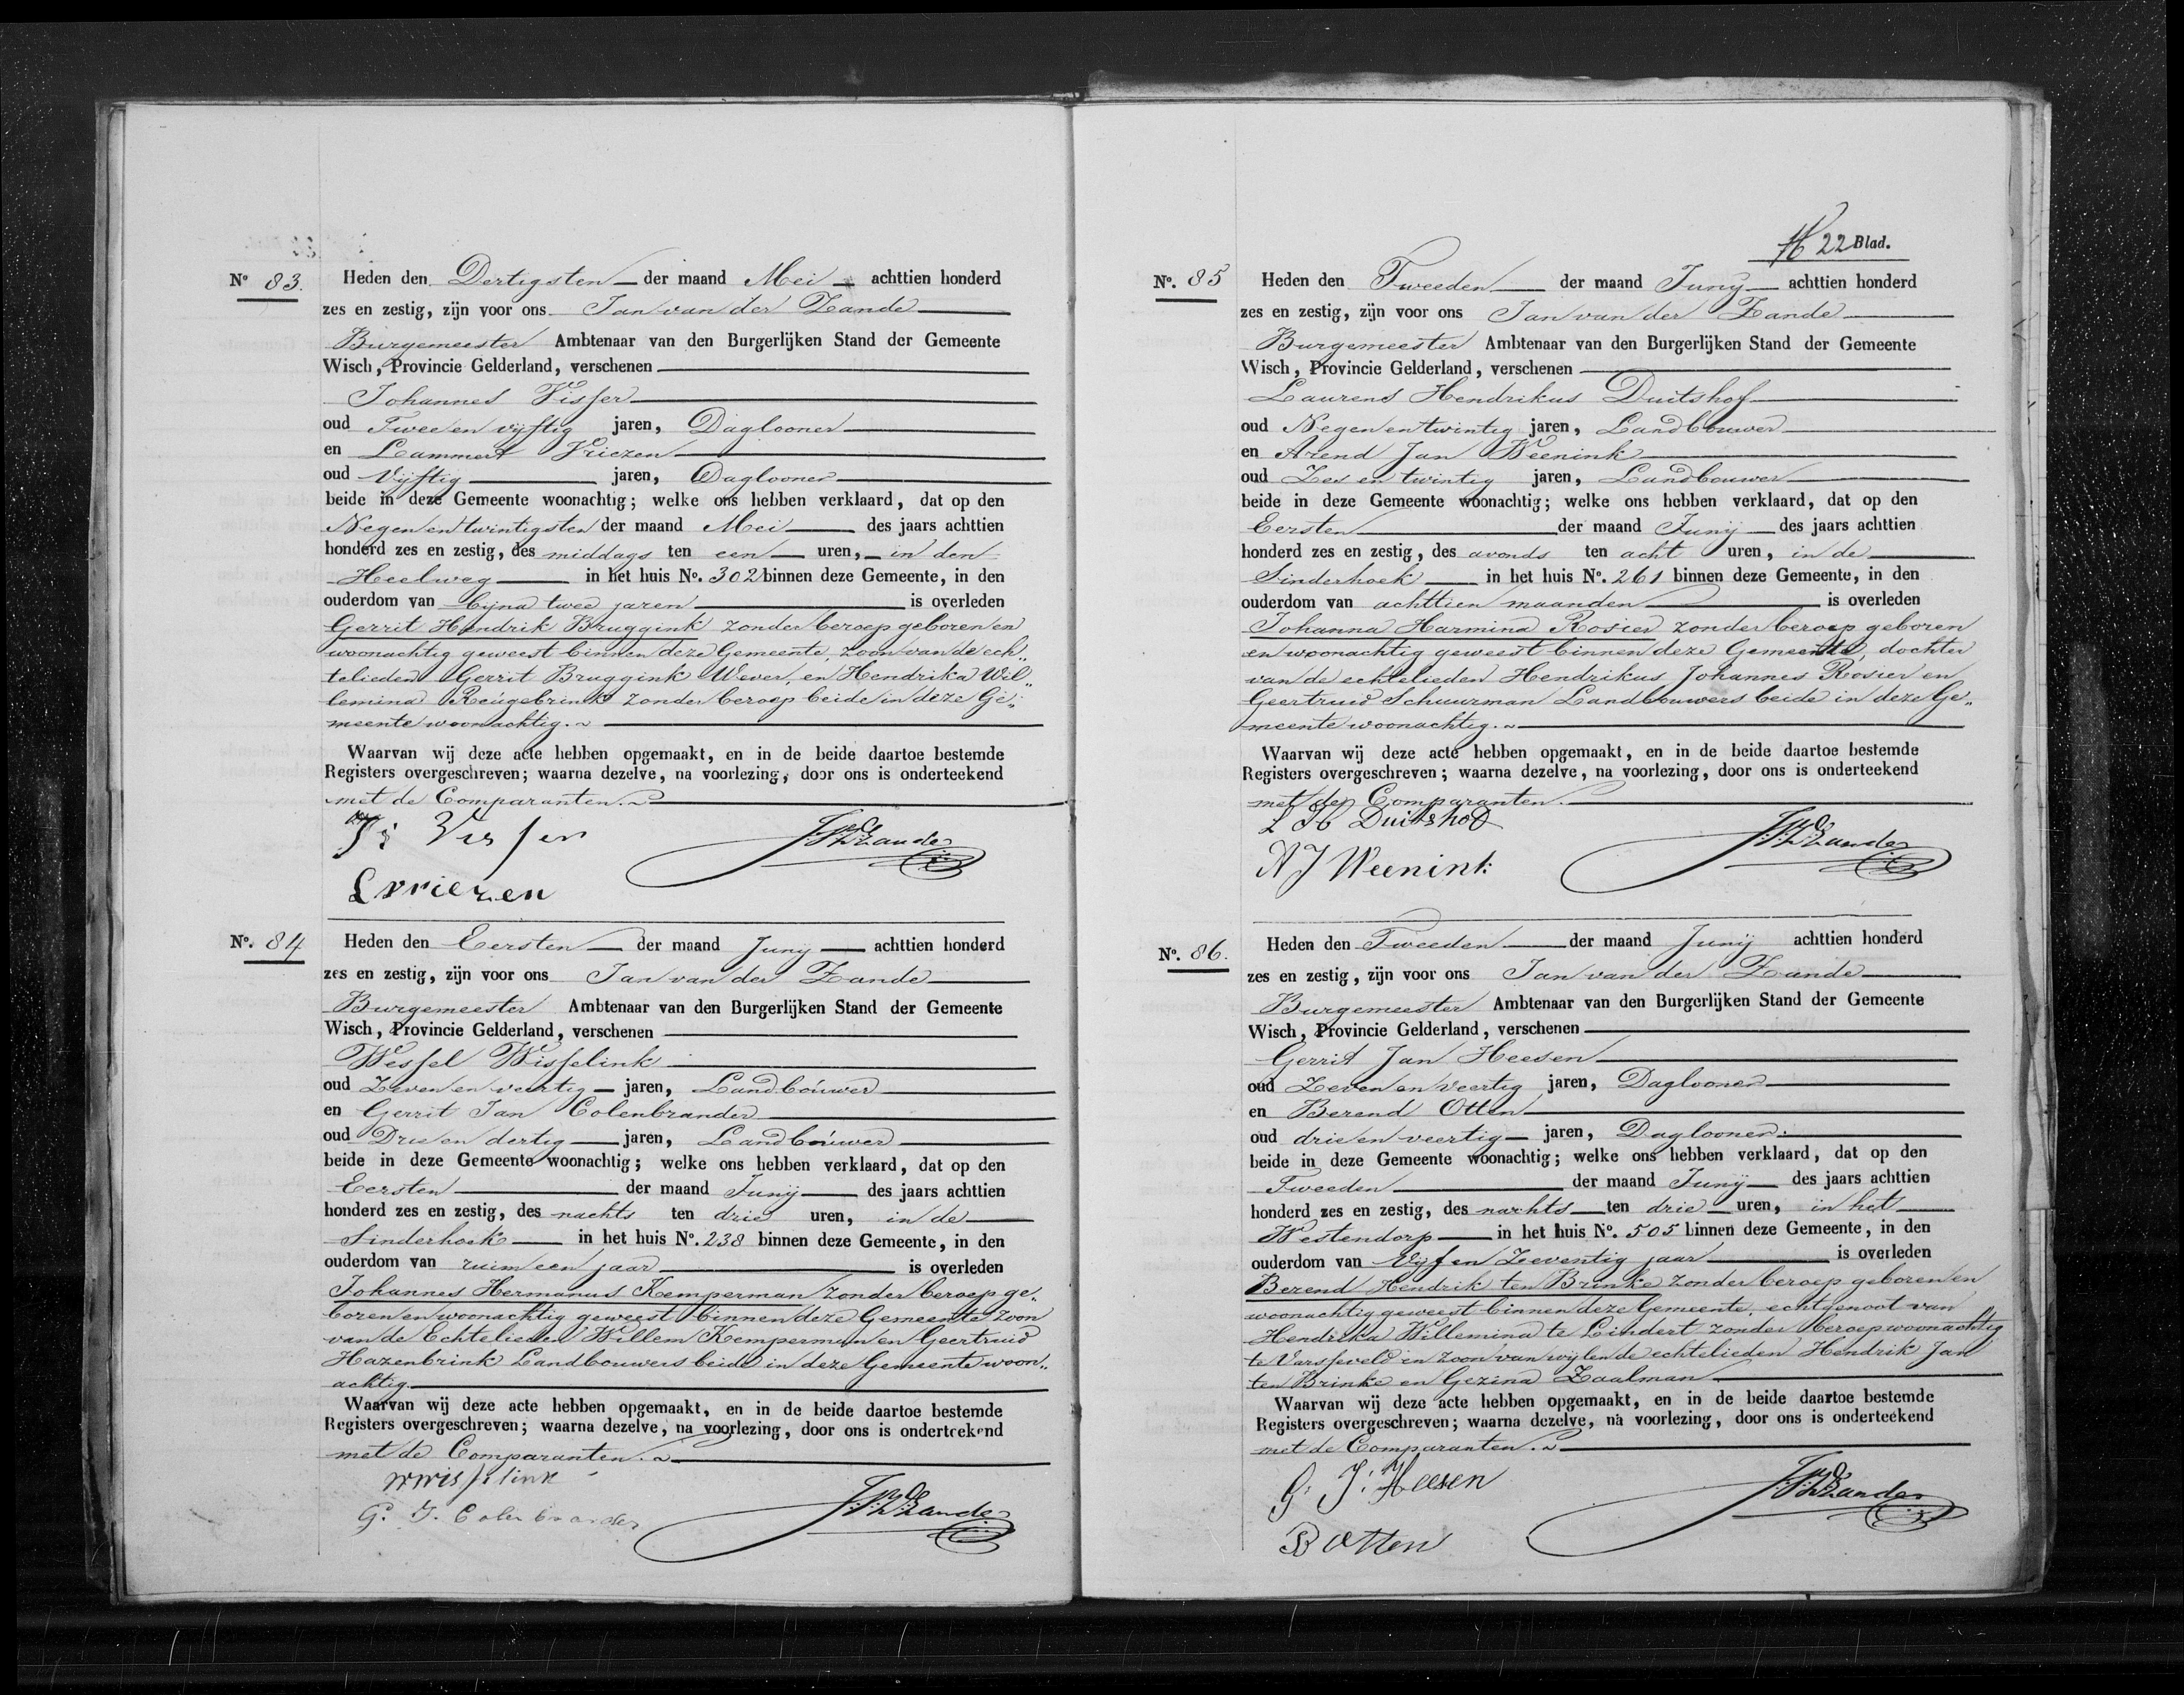 Nº 83.
Heden den Dertigsten der maand Mei achttien honderd
zes en zestig, zijn voor ons Jan van der Zande
Burgemeester Ambtenaar van den Burgerlijken Stand der Gemeente
Wisch, Provincie Gelderland, verschenen
Johannes Visser
oud Twee en vijftig jaren, Daglooner
en Lammert Vriezen
oud Vijftig jaren, Daglooner
beide in deze Gemeente woonachtig; welke ons hebben verklaard, dat op den
Negen en twintigsten der maand Mei des jaars achttien
honderd zes en zestig, des middags ten een uren, in den
Heelweg in het huis Nº. 302 binnen deze Gemeente, in den
ouderdom van bijna twee jaren is overleden
Gerrit Hendrik Bruggink zonder beroep geboren en
woonachtig geweest binnen deze Gemeente, zoon van de ech„
telieden Gerrit Bruggink Wever, en Hendrika Wil„
lemina Reugebrink zonder beroep beide in deze Ge„
meente woonachtig.
Waarvan wij deze acte hebben opgemaakt, en in de beide daartoe bestemde
Registers overgeschreven; waarna dezelve, na voorlezing, door ons is onderteekend
met de Comparanten.
Js Visser
JvdZande
L vriezen
Nº. 84
Heden den Eersten der maand Junij achttien honderd
zes en zestig, zijn voor ons Jan van der Zande
Burgemeester Ambtenaar van den Burgerlijken Stand der Gemeente
Wisch, Provincie Gelderland, verschenen
Wessel Wisselink
oud Zeven en veertig jaren, Landbouwer
en Gerrit Jan Colenbrander
oud Drie en dertig jaren, Landbouwer
beide in deze Gemeente woonachtig; welke ons hebben verklaard, dat op den
Eersten der maand Junij des jaars achttien
honderd zes en zestig, des nachts ten drie uren, in de
Sinderhoek in het huis Nº. 238 binnen deze Gemeente, in den
ouderdom van ruim een jaar is overleden
Johannes Hermanus Kemperman zonder beroep ge„
boren en woonachtig geweest binnen deze Gemeente zoon
van de Echtelieden Willem Kemperman en Geertruid
Hazenbrink Landbouwers beide in deze Gemeente woon„
achtig.
Waarvan wij deze acte hebben opgemaakt, en in de beide daartoe bestemde
Registers overgeschreven; waarna dezelve, na voorlezing, door ons is onderteekend
met de Comparanten.
W wisselink
G. J. Colenbrander
JvdZande
22 Blad.
Nº. 85
Heden den Tweeden der maand Junij achttien honderd
zes en zestig, zijn voor ons Jan van der Zande
Burgemeester Ambtenaar van den Burgerlijken Stand der Gemeente
Wisch, Provincie Gelderland, verschenen
Laurens Hendrikus Duitshof
oud Negen en twintig jaren, Landbouwer
en Arend Jan Weenink
oud Zes en twintig jaren, Landbouwer
beide in deze Gemeente woonachtig; welke ons hebben verklaard, dat op den
Eersten der maand Junij des jaars achttien
honderd zes en zestig, des avonds ten acht uren, in de
Sinderhoek in het huis Nº. 261 binnen deze Gemeente, in den
ouderdom van achttien maanden is overleden
Johanna Harmina Rosier zonder beroep geboren
en woonachtig geweest binnen deze Gemeente, dochter
van de echtelieden Hendrikus Johannes Rosier en
Geertruid Schuurman Landbouwers beide in deze Ge„
meente woonachtig.
Waarvan wij deze acte hebben opgemaakt, en in de beide daartoe bestemde
Registers overgeschreven; waarna dezelve, na voorlezing, door ons is onderteekend
met de Comparanten.
L H Duitshof
JvdZande
A J Weenink
Nº. 86.
Heden den Tweeden der maand Junij achttien honderd
zes en zestig, zijn voor ons Jan van der Zande
Burgemeester Ambtenaar van den Burgerlijken Stand der Gemeente
Wisch, Provincie Gelderland, verschenen
Gerrit Jan Heesen
oud Zeven en veertig jaren, Daglooner
en Berend Otten
oud drie en veertig jaren, Daglooner
beide in deze Gemeente woonachtig; welke ons hebben verklaard, dat op den
Tweeden der maand Junij des jaars achttien
honderd zes en zestig, des nachts ten drie uren, in het
Westendorp in het huis Nº. 505 binnen deze Gemeente, in den
ouderdom van Vijf en Zeventig jaar is overleden
Berend Hendrik ten Brinke zonder beroep geboren en
woonachtig geweest binnen deze Gemeente, echtgenoot van
Hendrika Willemina te Lindert zonder beroep woonachtig
te Varsseveld en zoon van wijlen de echtelieden Hendrik Jan
ten Brinke en Gezina Zaalman
Waarvan wij deze acte hebben opgemaakt, en in de beide daartoe bestemde
Registers overgeschreven; waarna dezelve, na voorlezing, door ons is onderteekend
met de Comparanten.
G. J. Heesen
JvdZande
B Otten